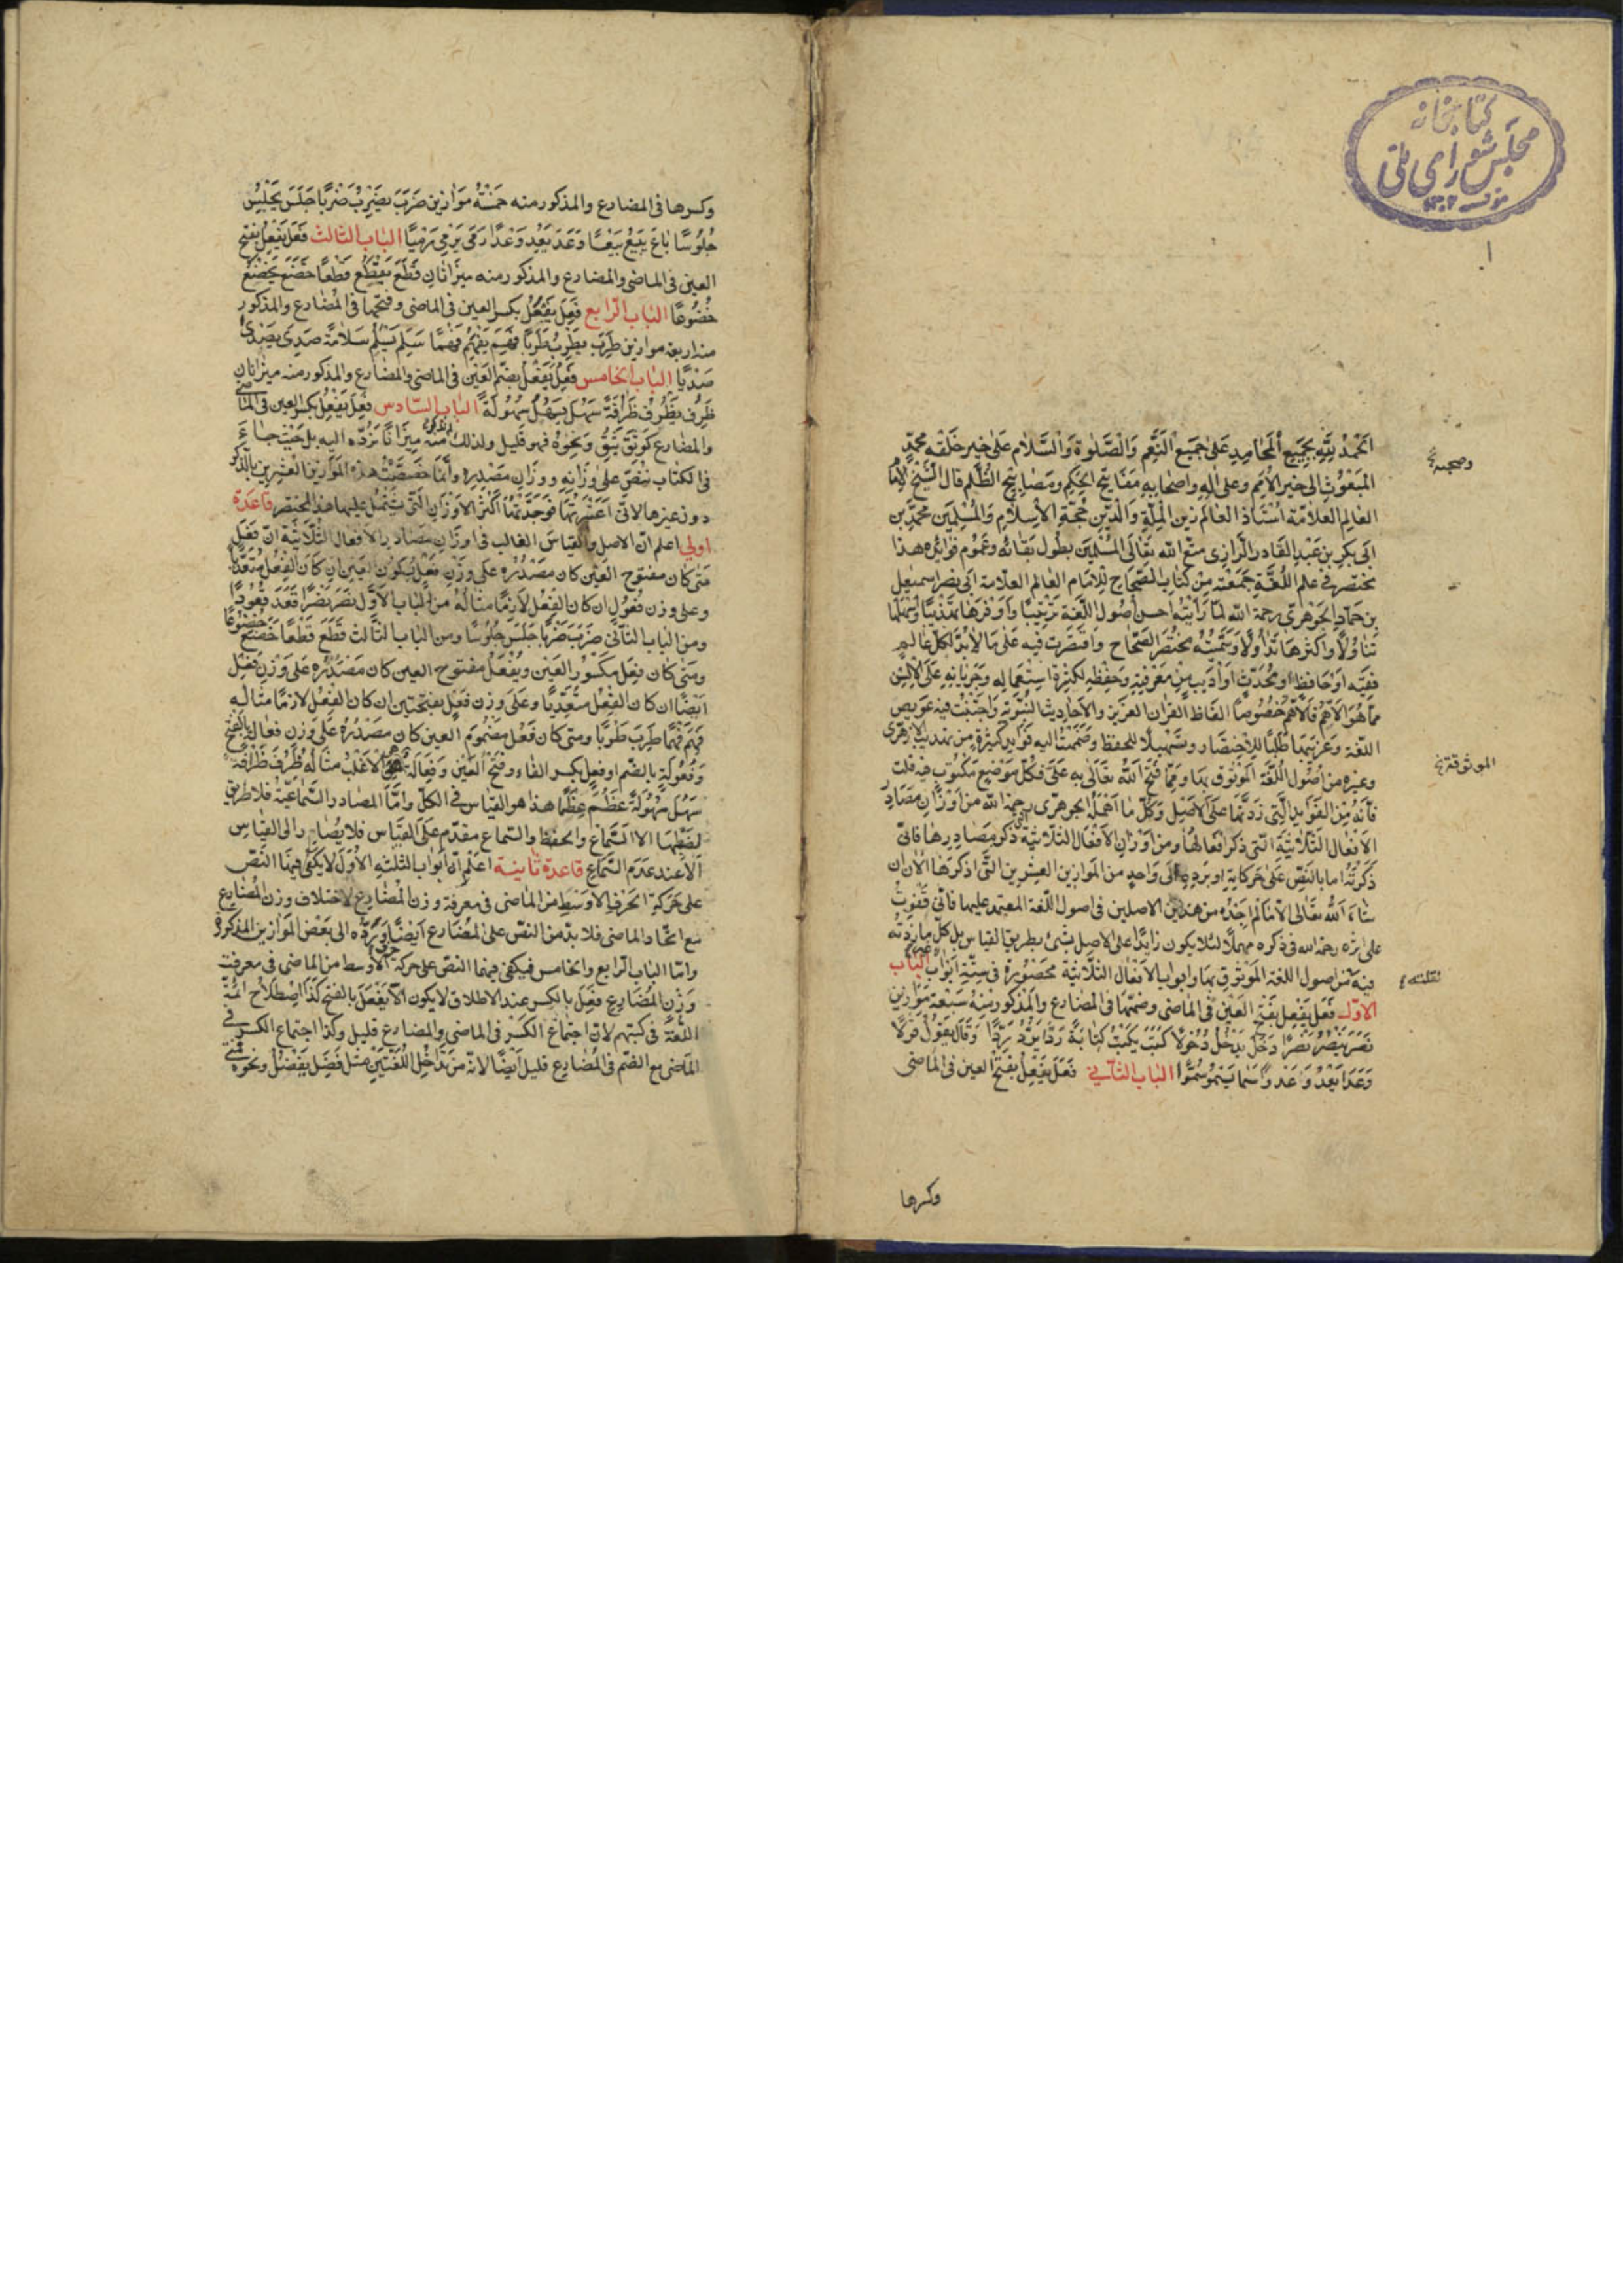 كتابخانه
مجلس شورای ملی
١
الحمد لله بجميع المحامد على جميع النعم والصلوة والسلام على خير خلقه محمد
المبعوث الى خير الامم وعلى اله واصحابه مفاتيح الحكم ومصابيح الظلم قال الشيخ الاما
العالم العلامة استاذ العالم زين الملة والدين حجة الاسلام والمسلمين محمد بن
ابى بكر بن عبد القادر الرازى متع الله تعالى المسلمين بطول بقائه وعموم فوائده هذا
مختصر فى علم اللغة جمعته من كتاب الصحاح للامام العالم العلامة ابى نصر اسمعيل
بن حماد الجوهرى رحمة الله لما رأيته احسن اصول اللغة ترتيبا واوفرها تهذيبا واسهلها
تناولا واكثرها تداولا وسميته مختصر الصحاح واقتصرت فيه على ما لا بد لكل عالم
فقيه او حافظ او محدث او اديب من معرفته وحفظه لكثرة استعماله وجريانه على الالسن
مما هو الاهم فالاهم خصوصا الفاظ القران العزيز والاحاديث النبوية واجتنبت فيه عويص
اللغة وغريبها طلبا للاختصار وتسهيلا للحفظ وضممت اليه فوايد كثيرة من تهذيب الازهرى
وغيره من اصول اللغة الموثوق بها ومما فتح الله تعالى به على فكل موضع مكتوب فيه قلت
فانه من الفوايد التى زدتها على الاصل وكل ما اهمله الجوهرى رحمة الله من اوزان مصادر
الافعال الثلاثية التى ذكر افعالها ومن اوزان الافعال الثلاثية التى ذكر مصادرها فانى
ذكرته اما بالنص على حركاته او برده الى واحد من الموازين العشرين التى اذكرها الان ان
شاء الله تعالى الا ما لم اجده من هذين الاصلين فى اصول اللغة المعتمد عليها فانى قفوت
على اثره رحمه الله فى ذكره مهملا لئلا يكون زايدا على الاصل بشئ بطريق القياس بل كل ما زدته
فيه من اصول اللغة الموثوق بها وابواب الافعال الثلاثية محصورة فى ستة ابواب الباب
الاول فعل يفعل بفتح العين فى الماضى وضمها فى المضارع والمذكور منه سبعة موازين
نصر ينصر نصرا دخل يدخل دخولا كتب يكتب كتابة رد يرد ردا وقال يقول قولا
وعدا يعدو عدوا سما يسمو سموا الباب الثانى فعل يفعل بفتح العين فى الماضى
الموثوقة
نقلته
وكسرها
وكسرها فى المضارع والمذكور منه خمسة موازين ضرب يضرب ضربا جلس يجلس
جلوسا باع يبيع بيعا وعد يعد وعدا رمى يرمى رميا الباب الثالث فعل يفعل بفتح
العين فى الماضى والمضارع والمذكور منه ميزانان قطع يقطع قطعا خضع يخضع
خضوعا الباب الرابع فعل يفعل بكسر العين فى الماضى وفتحها فى المضارع والمذكور
منه اربعة موازين طرب يطرب طربا فهم يفهم فهما سلم يسلم سلامة صدى يصدى
صديا الباب الخامس فعل يفعل بضم العين فى الماضى والمضارع والمذكور منه ميزانان
ظرف يظرف ظرافة سهل يسهل سهولة الباب السادس فعل يفعل بكسر العين فى الماضى
والمضارع كوثق يثق ونحوه فهو قليل ولذلك لم نذكر منه ميزانا نرده اليه بل حيث جاء
فى الكتاب ننص على وزانه ووزان مصدره وانما خصصت هذه الموازين العشرين بالذكر
دون غيرها لانى اعتبرتها فوجدتها اكثر الاوزان التى يشتمل عليها هذا المختصر قاعدة
اولى اعلم ان الاصل والقياس الغالب فى اوزان مصادر الافعال الثلاثية ان فعل
متى كان مفتوح العين كان مصدره على وزن فعل بسكون العين ان كان الفعل متعديا
وعلى وزن فعول ان كان الفعل لازما مثاله من الباب الاول نصر نصرا قعد قعودا
ومن الباب الثانى ضرب ضربا جلس جلوسا ومن الباب الثالث قطع قطعا خضع خضوعا
ومتى كان فعل مكسور العين ويفعل مفتوح العين كان مصدره على وزن فعل
ايضا ان كان الفعل متعديا وعلى وزن فعل بفتحتين ان كان الفعل لازما مثاله
فهم فهما طرب طربا ومتى كان فعل مضموم العين كان مصدره على وزن فعالة بالفتح
وفعولة بالضم او فعل بكسر الفاء وفتح العين وفعالة هى الاغلب مثاله ظرف ظرافة
سهل سهولة عظم عظما هذا هو القياس فى الكل واما المصادر السماعية فلا طريق
لضبطها الا السماع والحفظ والسماع مقدم على القياس فلا يصار الى القياس
الا عند عدم السماع قاعدة ثانية اعلم ان ابواب الثلثة الاول لا يكفى فيها النص
على حركة الحرف الاوسط من الماضى فى معرفة وزن المضارع لاختلاف وزن المضارع
مع اتحاد الماضى فلا بد من النص على المضارع ايضا او رده الى بعض الموازين المذكورة
واما الباب الرابع والخامس فيكفى فيهما النص على حركة الحرف الاوسط من الماضى فى معرفة
وزن المضارع فعل بالكسر عند الاطلاق لا يكون الا يفعل بالفتح كذا اصطلاح ائمة
اللغة فى كتبهم لان اجتماع الكسر فى الماضى والمضارع قليل وكذا اجتماع الكسر فى
الماضى مع الضم فى المضارع قليل ايضا لانه من تداخل اللغتين مثل فضل يفضل ونحوه